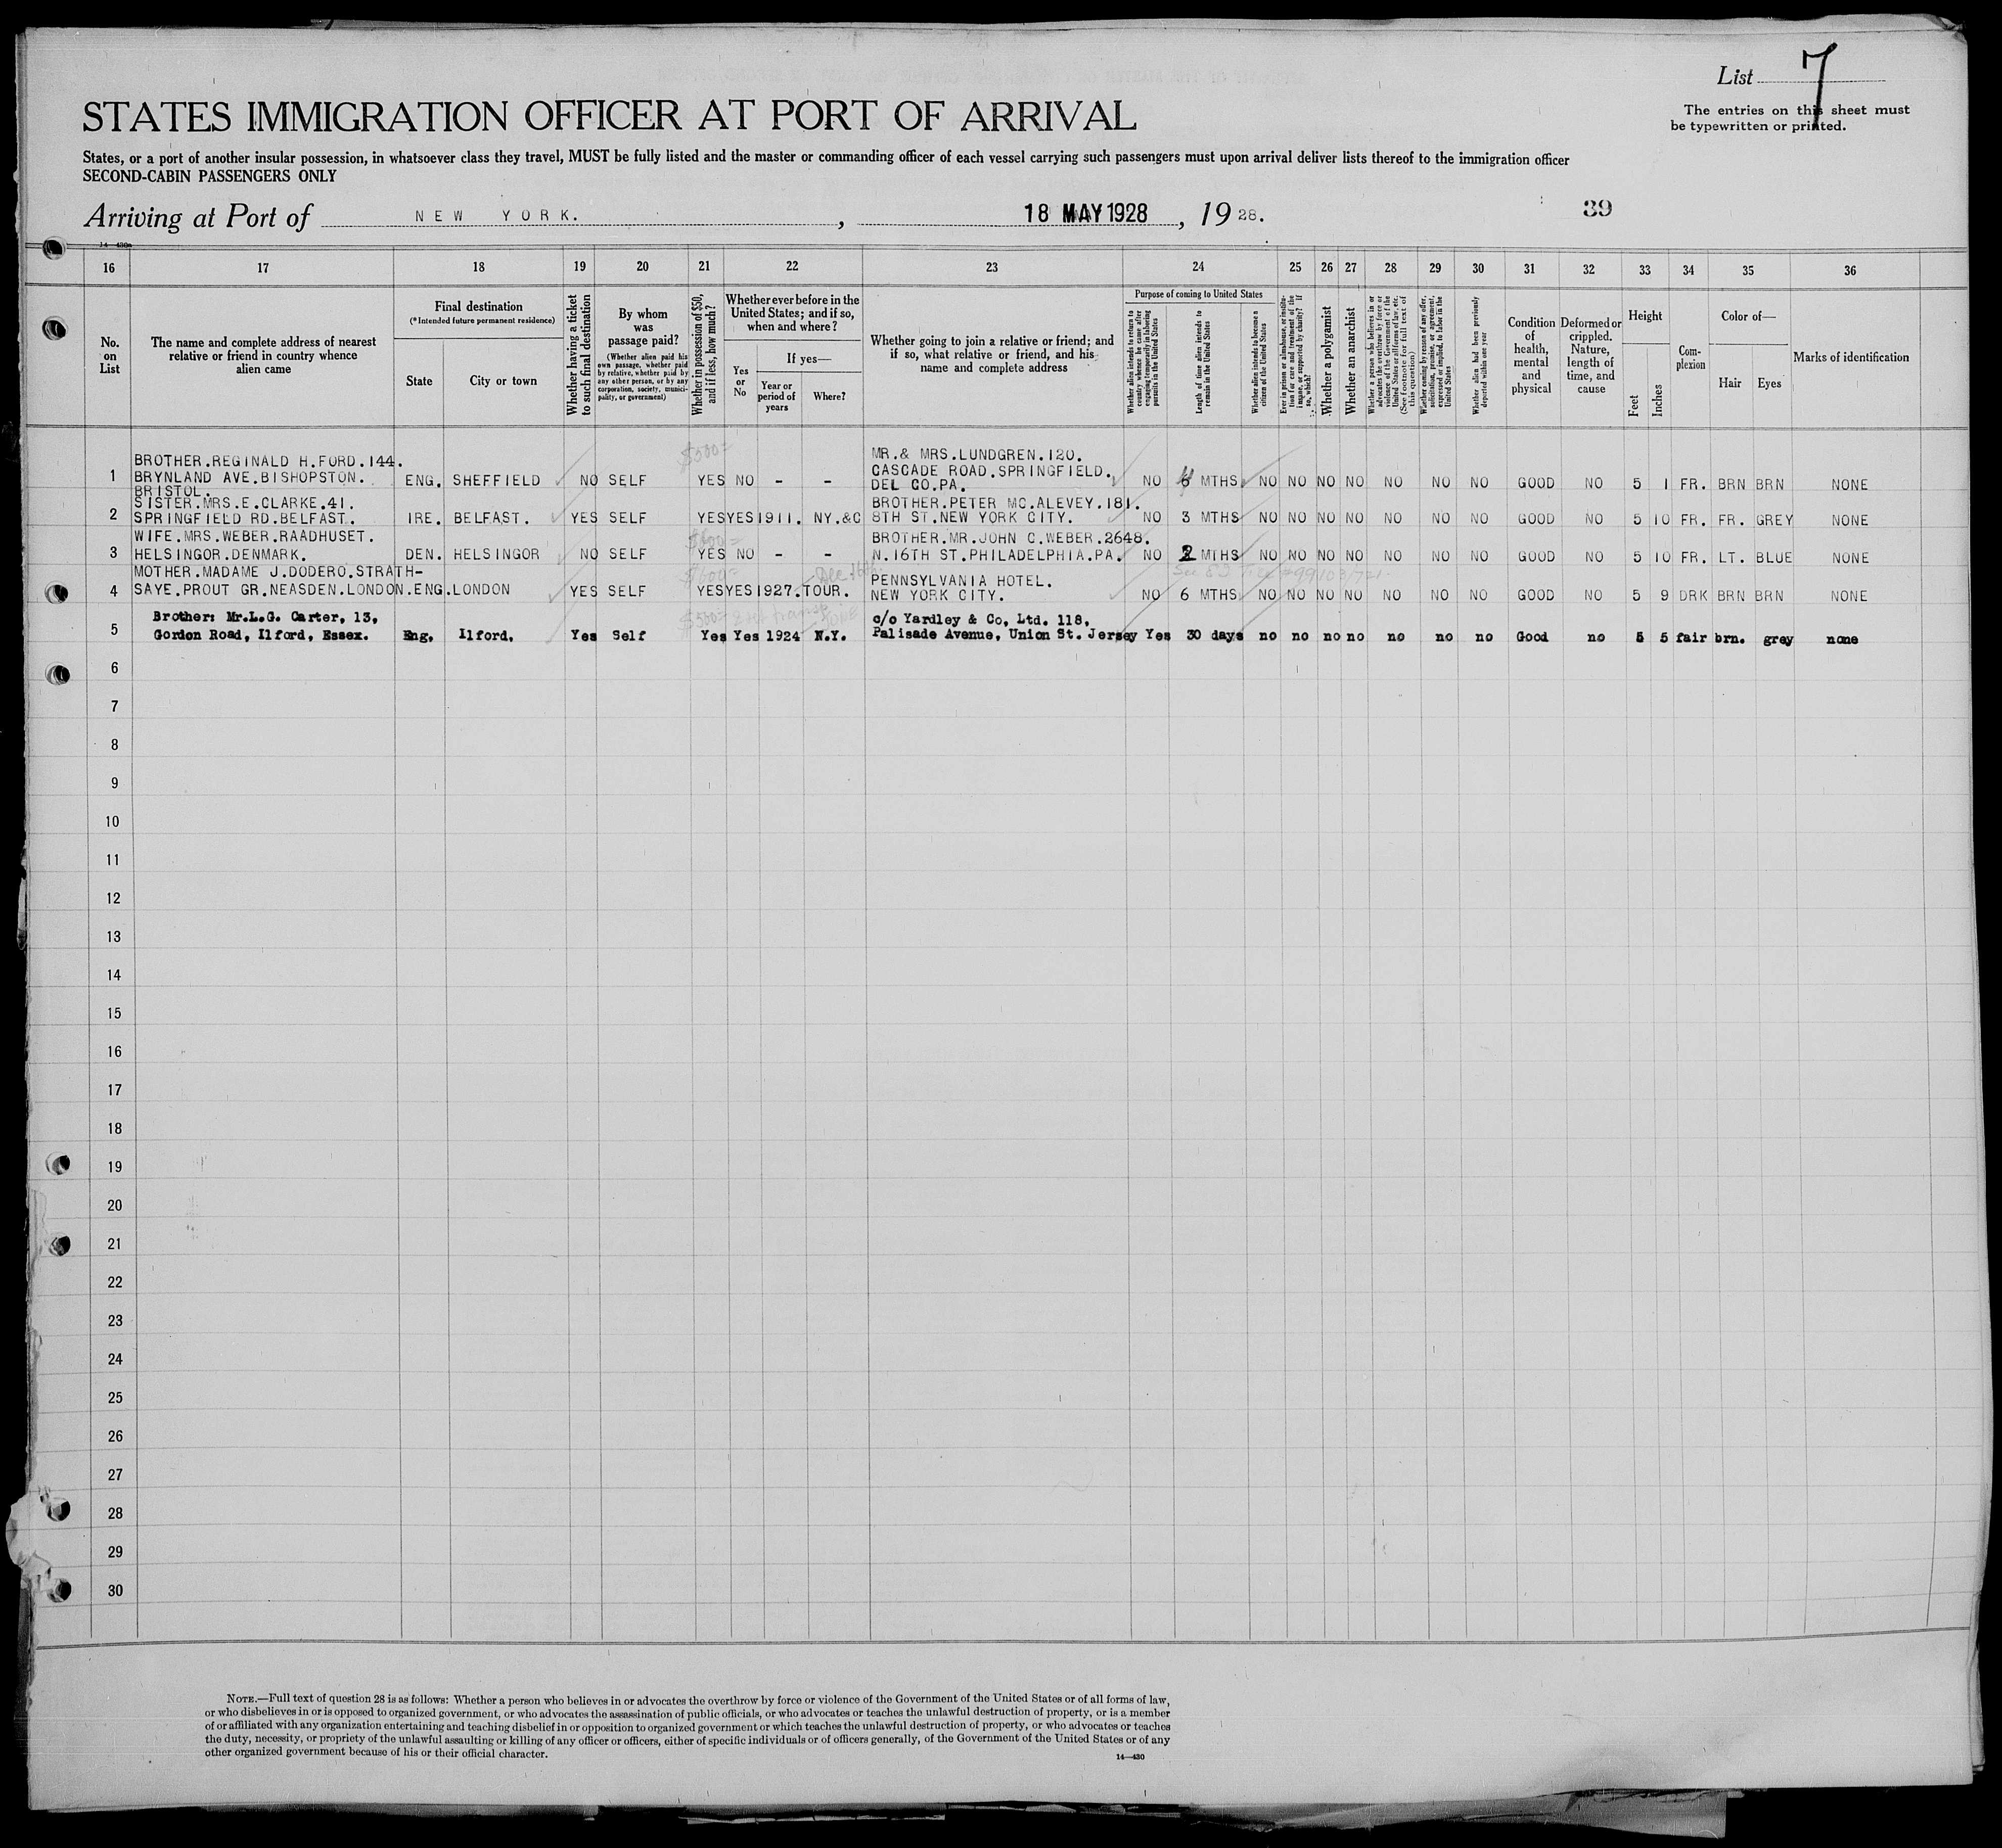 List 7
The entries on this sheet must
be typewritten or printed.
STATES IMMIGRATION OFFICER AT PORT OF ARRIVAL
States, or a port of another insular possession, in whatsoever class they travel, MUST be fully listed and the master or commanding officer of each vessel carrying such passengers must upon arrival deliver lists thereof to the immigration officer
SECOND-CABIN PASSENGERS ONLY
Arriving at Port of NEW YORK. , 18 MAY 1928 , 19 28. 39
14—430a
16 17 18 19 20 21 22 23 24 25 26 27 28 29 30 31 32 33 34 35 36
No.
on
List
The name and complete address of nearest
relative or friend in country whence
alien came
Final destination
(*Intended future permanent residence)
State City or town
Whether having a ticket
to such final destination
By whom
was
passage paid?
(Whether alien paid his
own passage, whether paid
by relative, whether paid by
any other person, or by any
corporation, society, munici-
pality, or government)
Whether in possession of $50,
and if less, how much?
Whether ever before in the
United States; and if so,
when and where?
Yes
or
No
If yes—
Year or
period of
years
Where?
Whether going to join a relative or friend; and
if so, what relative or friend, and his
name and complete address
Purpose of coming to United States
Whether alien intends to return to
country whence he came after
engaging temporarily in laboring
pursuits in the United States
Length of time alien intends to
remain in the United States
Whether alien intends to become a
citizen of the United States
Ever in prison or almshouse, or institu-
tion for care and treatment of the
insane, or supported by charity? If
so, which?
Whether a polygamist
Whether an anarchist
Whether a person who believes in or
advocates the overthrow by force or
violence of the Government of the
United States or all forms of law, etc.
(See footnote for full text of
this question)
Whether coming by reason of any offer,
solicitation, promise, or agreement,
expressed or implied, to labor in the
United States
Whether alien had been previously
deported within one year
Condition
of
health,
mental
and
physical
Deformed or
crippled.
Nature,
length of
time, and
cause
Height
Feet Inches
Com-
plexion
Color of—
Hair Eyes
Marks of identification
$500=
BROTHER.REGINALD H.FORD.144. MR.& MRS.LUNDGREN.120.
1 BRYNLAND AVE.BISHOPSTON. ENG. SHEFFIELD NO SELF YES NO - - CASCADE ROAD.SPRINGFIELD. NO MTHS NO NO NO NO NO NO NO GOOD NO 5 1 FR. BRN BRN NONE
BRISTOL. DEL CO.PA.
SISTER.MRS.E.CLARKE.41. BROTHER.PETER MC.ALEVEY.181.
2 SPRINGFIELD RD.BELFAST. IRE. BELFAST. YES SELF YES YES 1911. NY.&C 8TH ST.NEW YORK CITY. NO 3 MTHS NO NO NO NO NO NO NO GOOD NO 5 10 FR. FR. GREY NONE
WIFE.MRS.WEBER.RAADHUSET. $600= BROTHER.MR.JOHN C.WEBER.2648.
3 HELSINGOR.DENMARK. DEN. HELSINGOR NO SELF YES NO - - N.16TH ST.PHILADELPHIA.PA. NO 2 MTHS NO NO NO NO NO NO NO GOOD NO 5 10 FR. LT. BLUE NONE
MOTHER.MADAME J.DODERO.STRATH- $600= PENNSYLVANIA HOTEL.
4 SAYE.PROUT GR.NEASDEN.LONDON.ENG.LONDON YES SELF YES YES 1927. TOUR. NEW YORK CITY. NO 6 MTHS NO NO NO NO NO NO NO GOOD NO 5 9 DRK BRN BRN NONE
Brother: Mr.L.G. Carter, 13, $500= c/o Yardley & Co, Ltd. 118,
5 Gordon Road, Ilford, Essex. Eng. Ilford, Yes Self Yes Yes 1924 N.Y. Palisade Avenue, Union St. Jersey Yes 30 days no no no no no no no Good no 5 5 fair brn. grey none
6
7
8
9
10
11
12
13
14
15
16
17
18
19
20
21
22
23
24
25
26
27
28
29
30
NOTE.—Full text of question 28 is as follows: Whether a person who believes in or advocates the overthrow by force or violence of the Government of the United States or of all forms of law,
or who disbelieves in or is opposed to organized government, or who advocates the assassination of public officials, or who advocates or teaches the unlawful destruction of property, or is a member
of or affiliated with any organization entertaining and teaching disbelief in or opposition to organized government or which teaches the unlawful destruction of property, or who advocates or teaches
the duty, necessity, or propriety of the unlawful assaulting or killing of any officer or officers, either of specific individuals or of officers generally, of the Government of the United States or of any
other organized government because of his or their official character.
14—430